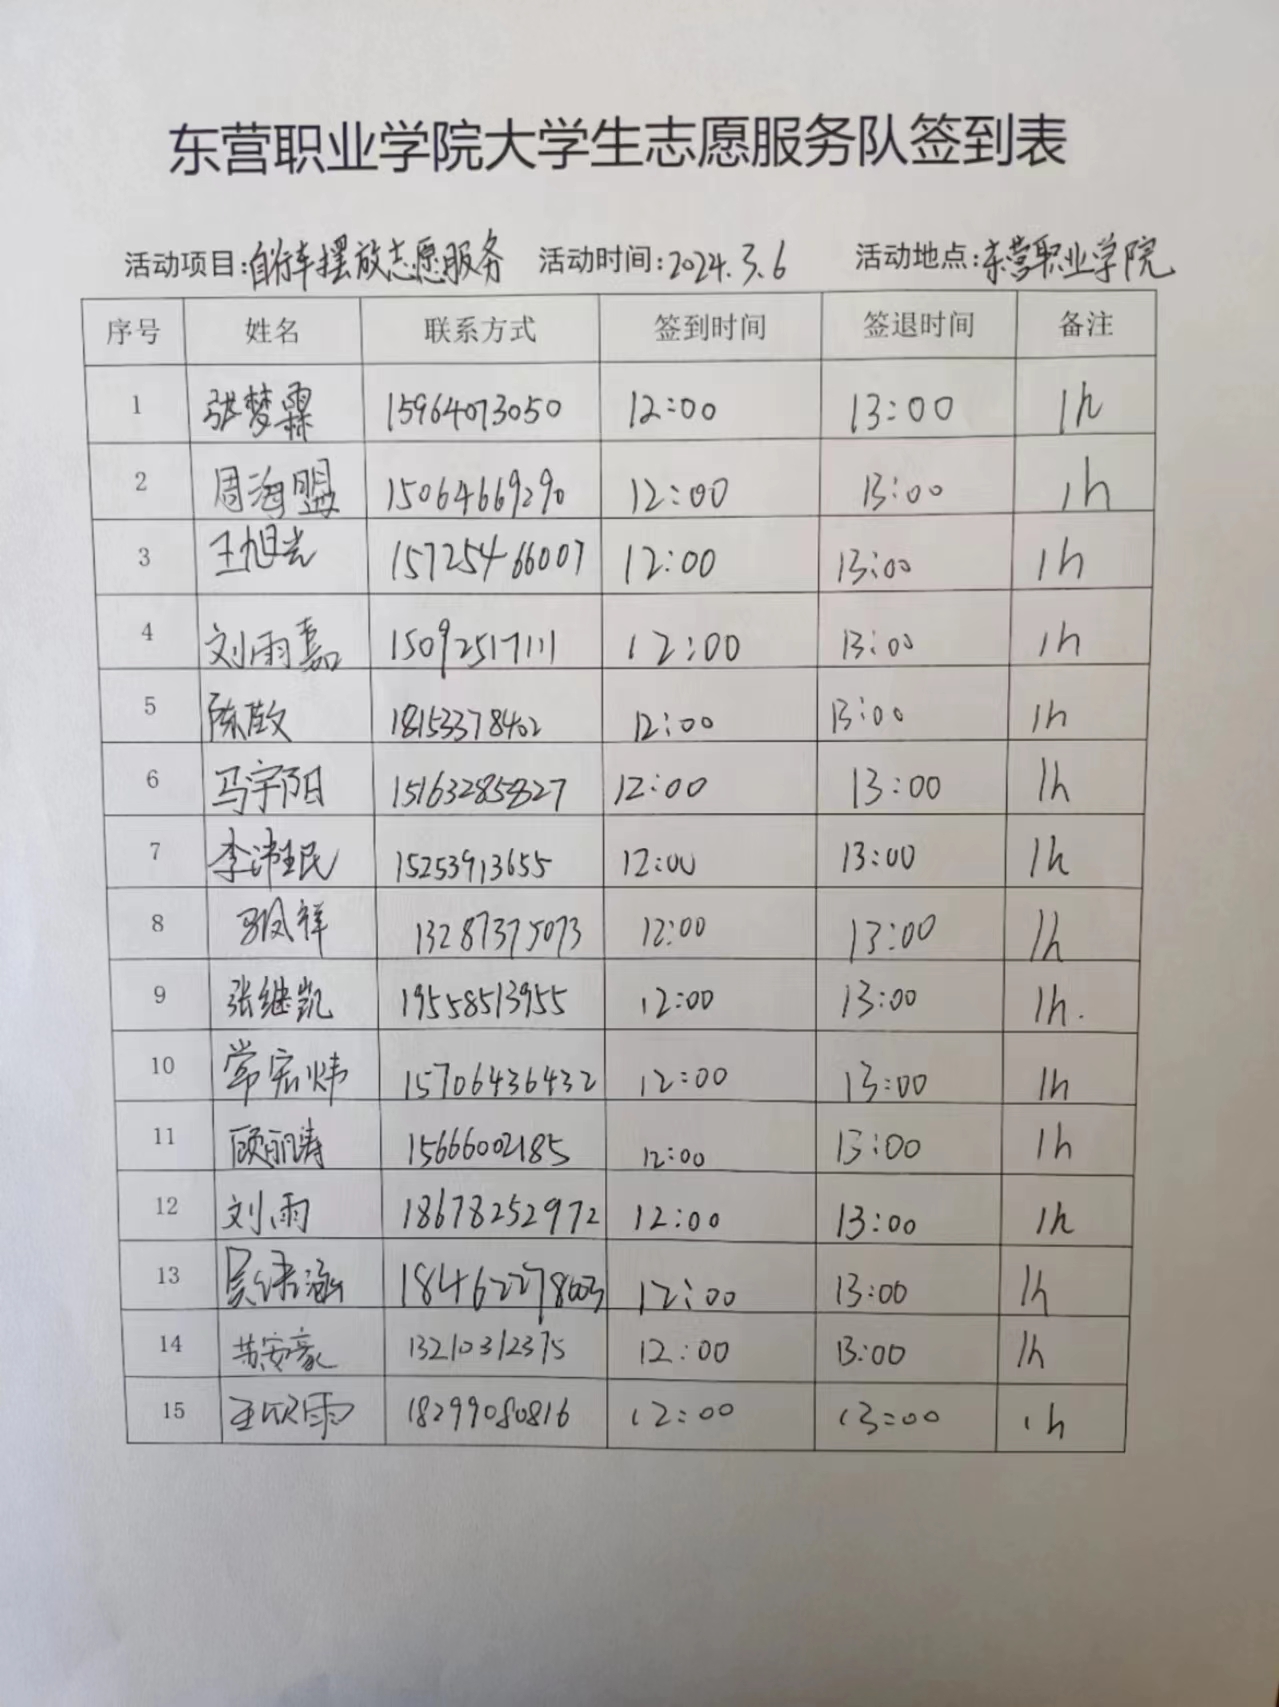 东营职业学院大学生志愿服务队签到表
活动项目:自行车摆放志愿服务 活动时间:2024.3.6 活动地点:东营职业学院
序号 姓名 联系方式 签到时间 签退时间 备注
1 张梦霖 15964073050 12:00 13:00 1h
2 周海盟 15064669290 12:00 13:00 1h
3 王旭光 15725466007 12:00 13:00 1h
4 刘雨嘉 15092517111 12:00 13:00 1h
5 陈敬文 18153378402 12:00 13:00 1h
6 马宇阳 15163285827 12:00 13:00 1h
7 李沛民 15253913655 12:00 13:00 1h
8 13287375073 12:00 13:00 1h
9 张继凯 19558513955 12:00 13:00 1h.
10 常宏炜 15706436432 12:00 13:00 1h
11 顾丽涛 15666002185 12:00 13:00 1h
12 刘雨 18678252972 12:00 13:00 1h
13 18462278603 12:00 13:00 1h
14 苏安豪 13210312375 12:00 13:00 1h
15 王欣雨 18299080816 12:00 13:00 1h